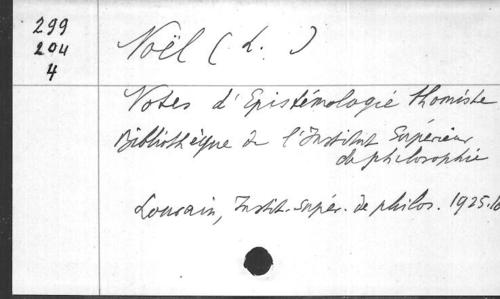 299
204
4
Noël (L. )
Notes d'Epistémologie thomiste
Bibliothèque de l'Institut Supérieur
de philosophie
Louvain, Instit. Supér. de philos. 1925.